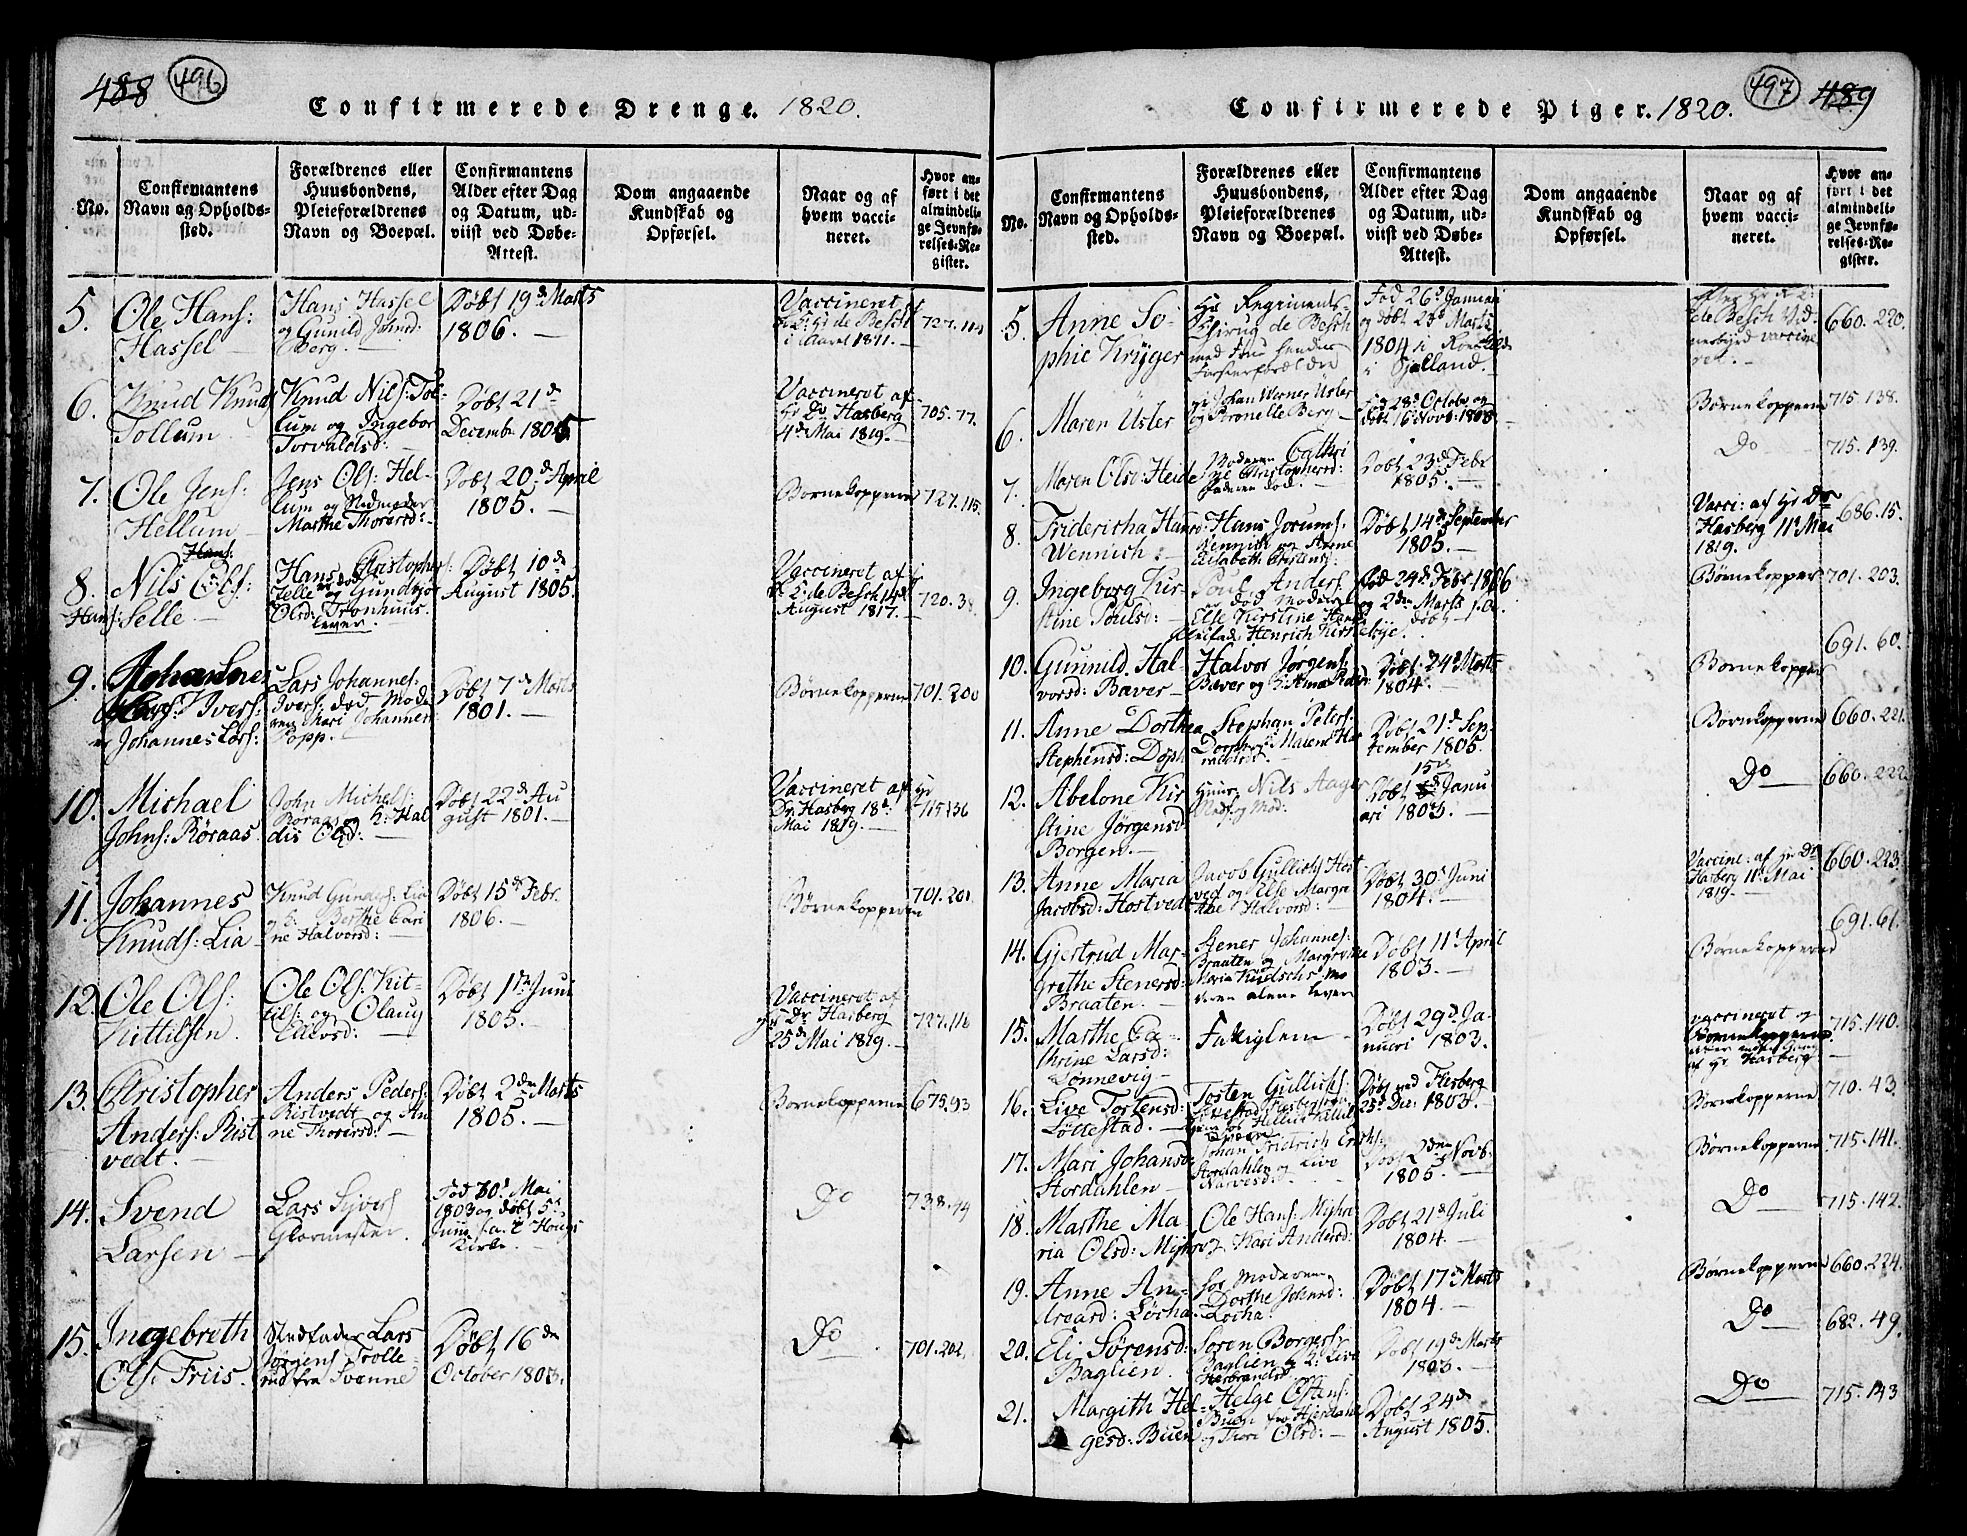 488 496
Confirmerede Drenge. 1820.
No.
Confirmantens
Navn og Opholds-
sted.
Forældrenes eller
Huusbondens,
Pleieforældrenes
Navn og Boepæl.
Confirmantens
Alder efter Dag
og Datum, ud-
viist ved Døbe-
Attest.
Dom angaaende
Kundskab og
Opførsel.
Naar og af
hvem vacci-
neret.
Hvor an-
ført i det
almindeli-
ge Jevnfø-
relses-Re-
gister.
5.
Ole Hans:
Hassel
Hans Hassel
og Gunild Johnsd:
Berg.
Døbt 19d Marts
1806.
Vaccineret
de Besch
i Aaret 1811.
727.114
6.
Knud Knuds
Tollum
Knud Nils: Tol-
lum og Ingebor
Torvaldsd:
Døbt 21d
Decembr 1805
Vaccineret af
Hr Dr Hasberg
4d Mai 1819.
705.77.
7.
Ole Jens:
Hellum
Jens Ols: Hel-
lum og Stedmoder
Marthe Thorersd:
Døbt 20d April
1805.
Børnekopperne
727.115.
8.
Hans:
Nils Ols:
Hans: Selle
Hans Christopher:
Selle død og Gundbjør
Olsd: Tronhuus.
lever.
Døbt 10de
August 1805.
Vaccineret af
de Besch 14d
August 1817.
720.38.
9.
Johannes
Lars: Ivers:
Johannes Lars:
Lars Johannes:
Ivers: død Mode
ren Kari Johannes:
Popp.
Døbt 7de Marts
1801.
Børnekopperne
701.200
10.
Michael
Johns: Røraas
John Michels:
Røraas og K: Hal
dis Olsd:
Døbt 22d Au
gust 1801.
Vaccineret af Hr
Dr. Hasberg 18d
Mai 1819.
715.136
11.
Johannes
Knuds: Lia
Knud Gunders: Lia
og K: Berthe Cari
ne Halvorsd:
Døbt 15de Febr.
1806.
Børnekopperne
701.201
12.
Ole Ols:
Kittilsen
Ole Ols: Kit-
tils: og Olaug
Halvorsd:
Døbt 1ste Juni
1805.
Vaccineret af
Hr Dr Hasberg
25d Mai 1819.
727.116
13.
Christopher
Anders: Rist
vedt.
Anders Peders:
Ristvedt og An
ne Thorersd:
Døbt 2den Marts
1805.
Børnekopperne
675.93
14.
Svend
Larsen
Lars Syvers:
Glarmester.
Fød 30d Mai
1803 og døbt 5d
Juni s. a. i Hougs
Kirke.
Do
738.74
15.
Ingebreth
Ols: Friis.
Stedfader Lars
Jørgens: Trolle
rud fra Svenne
Døbt 16de
October 1803.
Do
701.202.
497 489
Confirmerede Piger. 1820.
No.
Confirmantens
Navn og Opholds-
sted.
Forældrenes eller
Huusbondens,
Pleieforældrenes
Navn og Boepæl.
Confirmantens
Alder efter Dag
og Datum, ud-
viist ved Døbe-
Attest.
Dom angaaende
Kundskab og
Opførsel.
Naar og af
hvem vacci-
neret.
Hvor an-
ført i det
almindeli-
ge Jevnfø-
relses-Re-
gister.
5.
Anne So-
phie Krÿger
Hr Regiments
Chirug de Besch
med Frue hendes
Forsterforældre
Fød 26d Januari
og døbt 23d Marts
1804 i Roeskilde
i Sjelland.
de Besch
660.220.
6.
Maren Usler
Johan Werner Usler
og Petronelle Berg
Fød 28d October og
Døbt 16 Novb: 1803
Børnekopperne
715.138.
7.
Maren Olsd: Heide
Moderen Cathri
ne Christophersd:
Faderen død.
Døbt 23d Febr
1805.
Do
715.139.
8.
Friderictha Hansd
Wennich:
Hans Jorums:
Wennich og Anne
Elisabeth Christensd:
Døbt 14d September
1805.
Vacci: af Hr Dr
Hasberg 11d Mai
1819.
686.15.
9.
Ingeborg Kir-
stine Poulsd:
Poul Anders:
er død Moderen
Else Kirstine Hansd
Pleifad: Henrich Kirkebye.
Fød 24d Febr 1806
og 2den Marts s. a.
døbt
Børnekopper
701.203.
10.
Gunnild Hal-
vorsd: Bæver
Halvor Jørgens:
Bæver og K: Anne
Døbt 24d Marts
1804.
Børnekopper
691.60.
11.
Anne Dorthea
Stephensd: Doph
Stephan Peters:
Døbt 21d Sep-
tember 1805.
Børnekopperne
660.221.
12.
Abelone Kir
stine Jørgensd:
Borgen.
Nils Aager
15de
Døbt Janu
ari 1803.
Do
660.222.
13.
Anne Maria
Jacobsd: Hostvedt
Jacob Gullichs: Host
vedt og Else Margre
the Halvorsd:
Døbt 30d Juni
1804.
Vaccine: af Hr Dr
Hasberg 11d Mai
1819.
660.223.
14.
Gjertrud Mar-
grethe Stenersd:
Braaten.
Stener Johannes:
Braaten og Margrethe
Maria Mo
deren alene lever
Døbt 11d April
1803.
Børnekopperne
691.61.
15.
Marthe Ca-
thrine Larsd:
Tønnevig
Fattiglem
Døbt 29d Ja-
nuari 1803.
vaccineret
Børnekopperne
af Hr Hasberg
715.140.
16.
Live Tostensd:
Løttestad.
Tosten Gullichs:
Døbt ved Flesberg
25d Dec: 1803.
Børnekopperne
710.43.
17.
Mari Johansd:
Stordahlen
Johan Fridrich Erichs:
Stordahlen og Live
Narvesd:
Døbt 2den Novb.
1805.
Børnekopperne
715.141.
18.
Marthe Ma
ria Olsd: Myhre
Ole Hans: Myhre
og Kari Andersd:
Døbt 21d Juli
1804.
Do
715.142.
19.
Anne An-
drœasd: Løcha
for Moderen
Dorthe Johnsd:
Løcha.
Døbt 17d Marts
1804.
Børnekopperne
660.224.
20.
Eli Sørensd:
Baglien.
Søren Borgers:
Baglien og K: Live
Herbrandsd
Døbt 19d Marts
1803.
Do
682.49.
21.
Margith Hel-
gesd: Buen
Helge Østens:
Buen fra Hjerdahl
og Thori Olsd:
Døbt 24de
August 1805.
Do
715.143